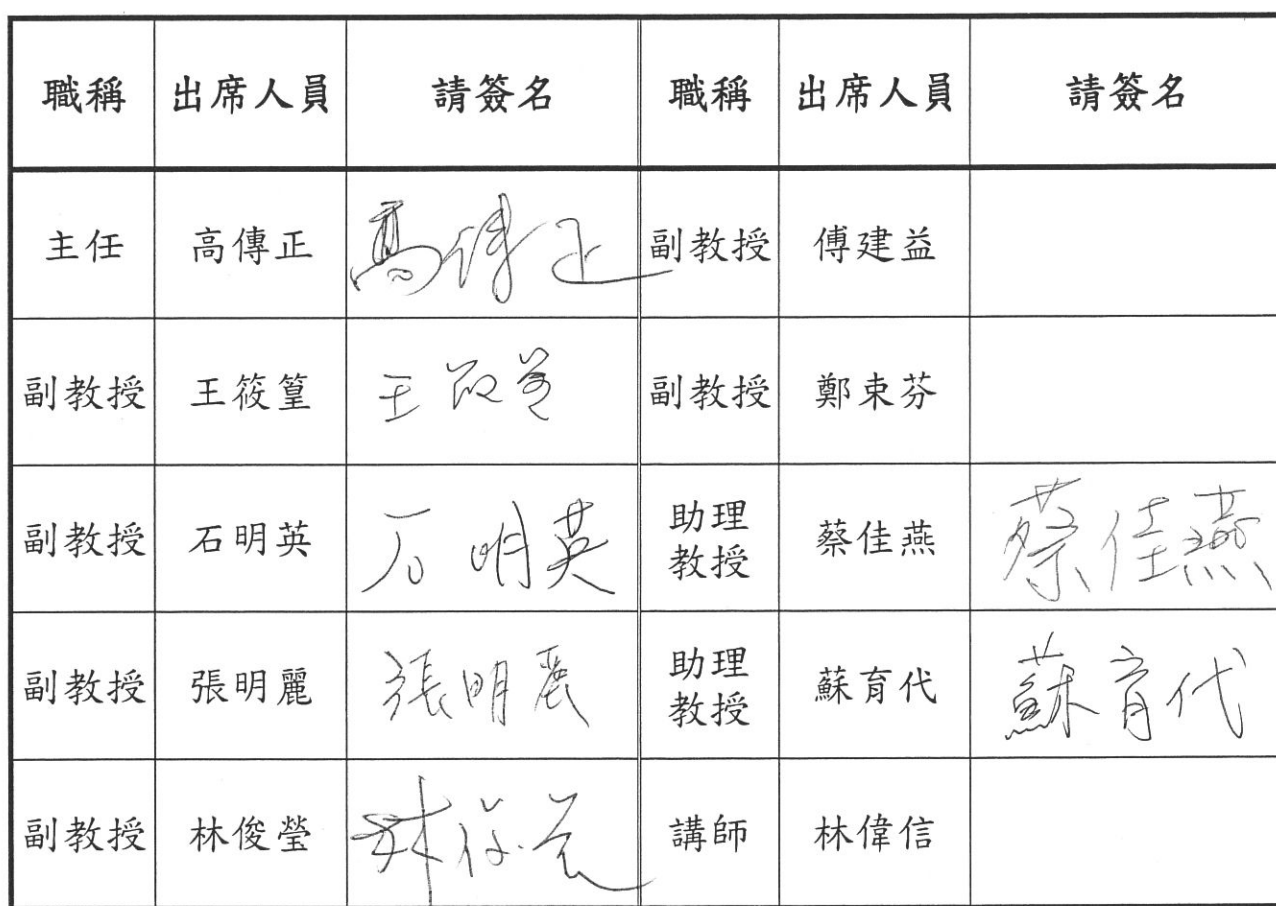 職稱 出席人員 請簽名 職稱 出席人員 請簽名
主任 高傳正 高傳正 副教授 傅建益
副教授 王筱篁 王筱篁 副教授 鄭束芬
副教授 石明英 石明英 助理教授 蔡佳燕 蔡佳燕
副教授 張明麗 張明麗 助理教授 蘇育代 蘇育代
副教授 林俊瑩 林俊瑩 講師 林偉信